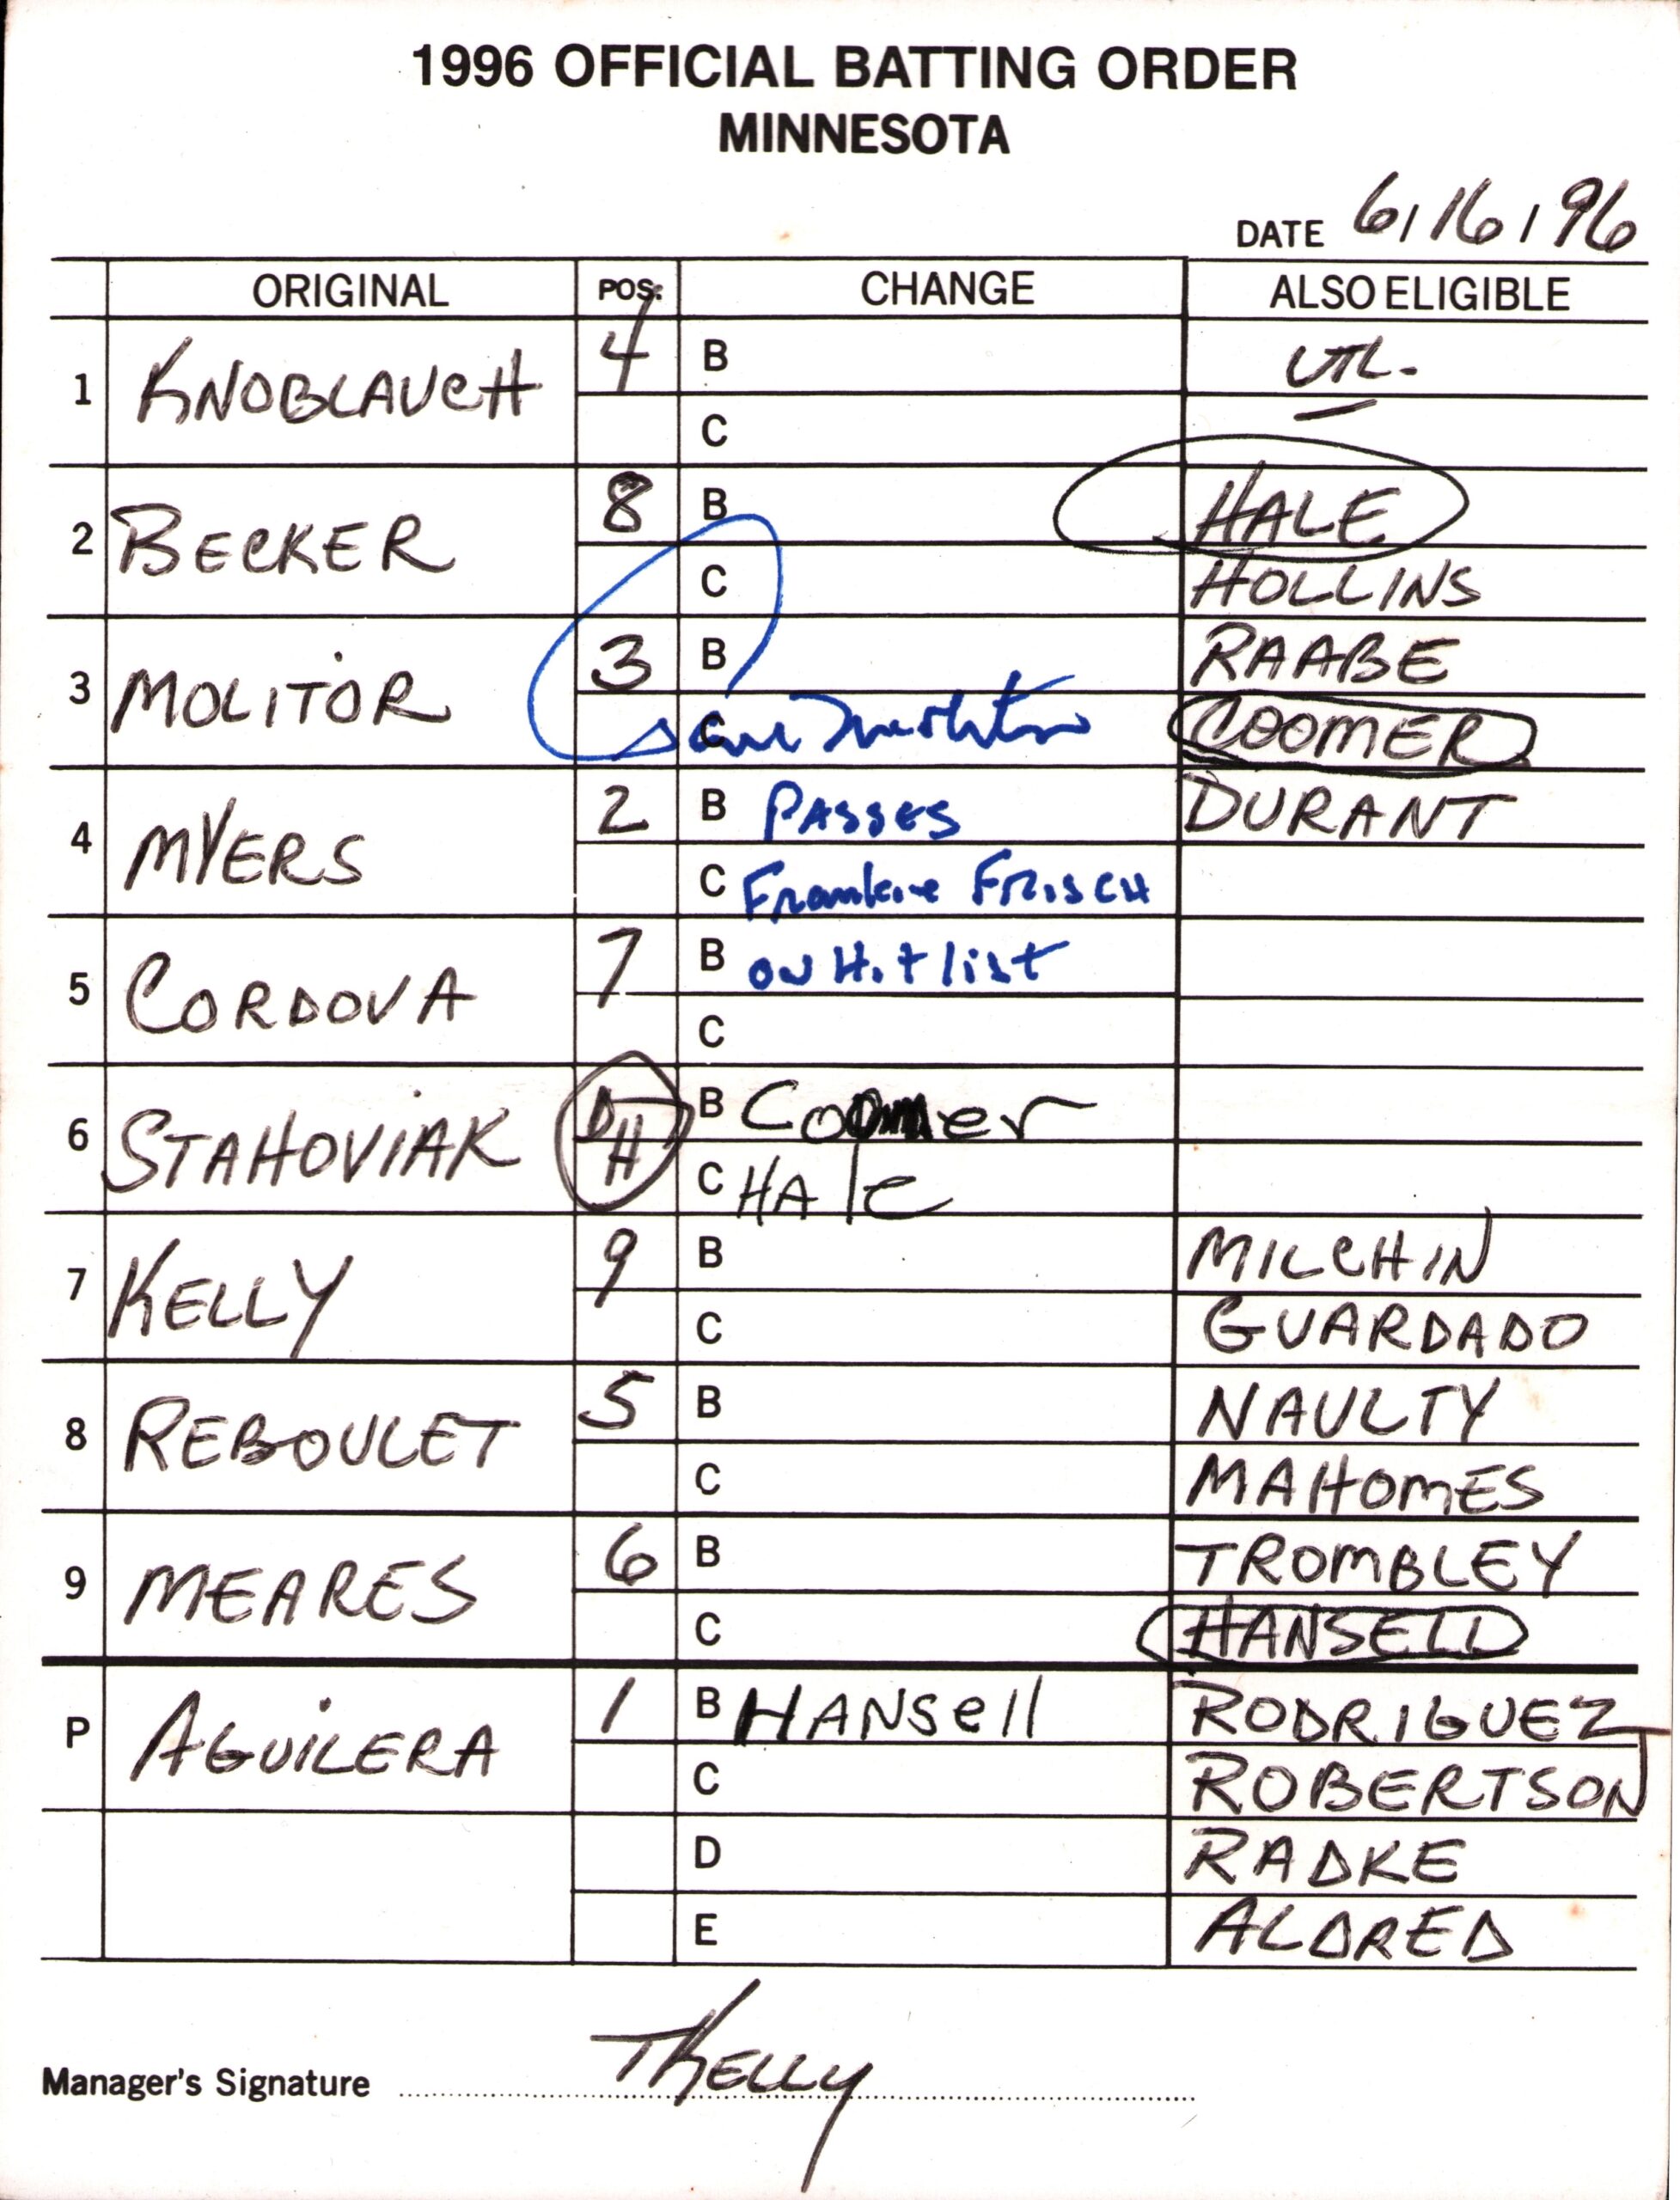 1996 OFFICIAL BATTING ORDER
MINNESOTA
DATE 6/16/96
ORIGINAL POS. CHANGE ALSO ELIGIBLE
1 KNOBLAUCH 4 B
C
2 BECKER 8 B HALE
C HOLLINS
3 MOLITOR 3 B RAABE
C Paul Molitor COOMER
4 MYERS 2 B PASSES DURANT
C Frankie FRISCH
5 CORDOVA 7 B ON Hit list
C
6 STAHOVIAK DH B Coomer
C HALe
7 KELLY 9 B MILCHIN
C GUARDADO
8 REBOULET 5 B NAULTY
C MAHOMES
9 MEARES 6 B TROMBLEY
C HANSELL
P AGUILERA 1 B HANSell RODRIGUEZ
C ROBERTSON
D RADKE
E ALDRED
Manager's Signature TKELLY